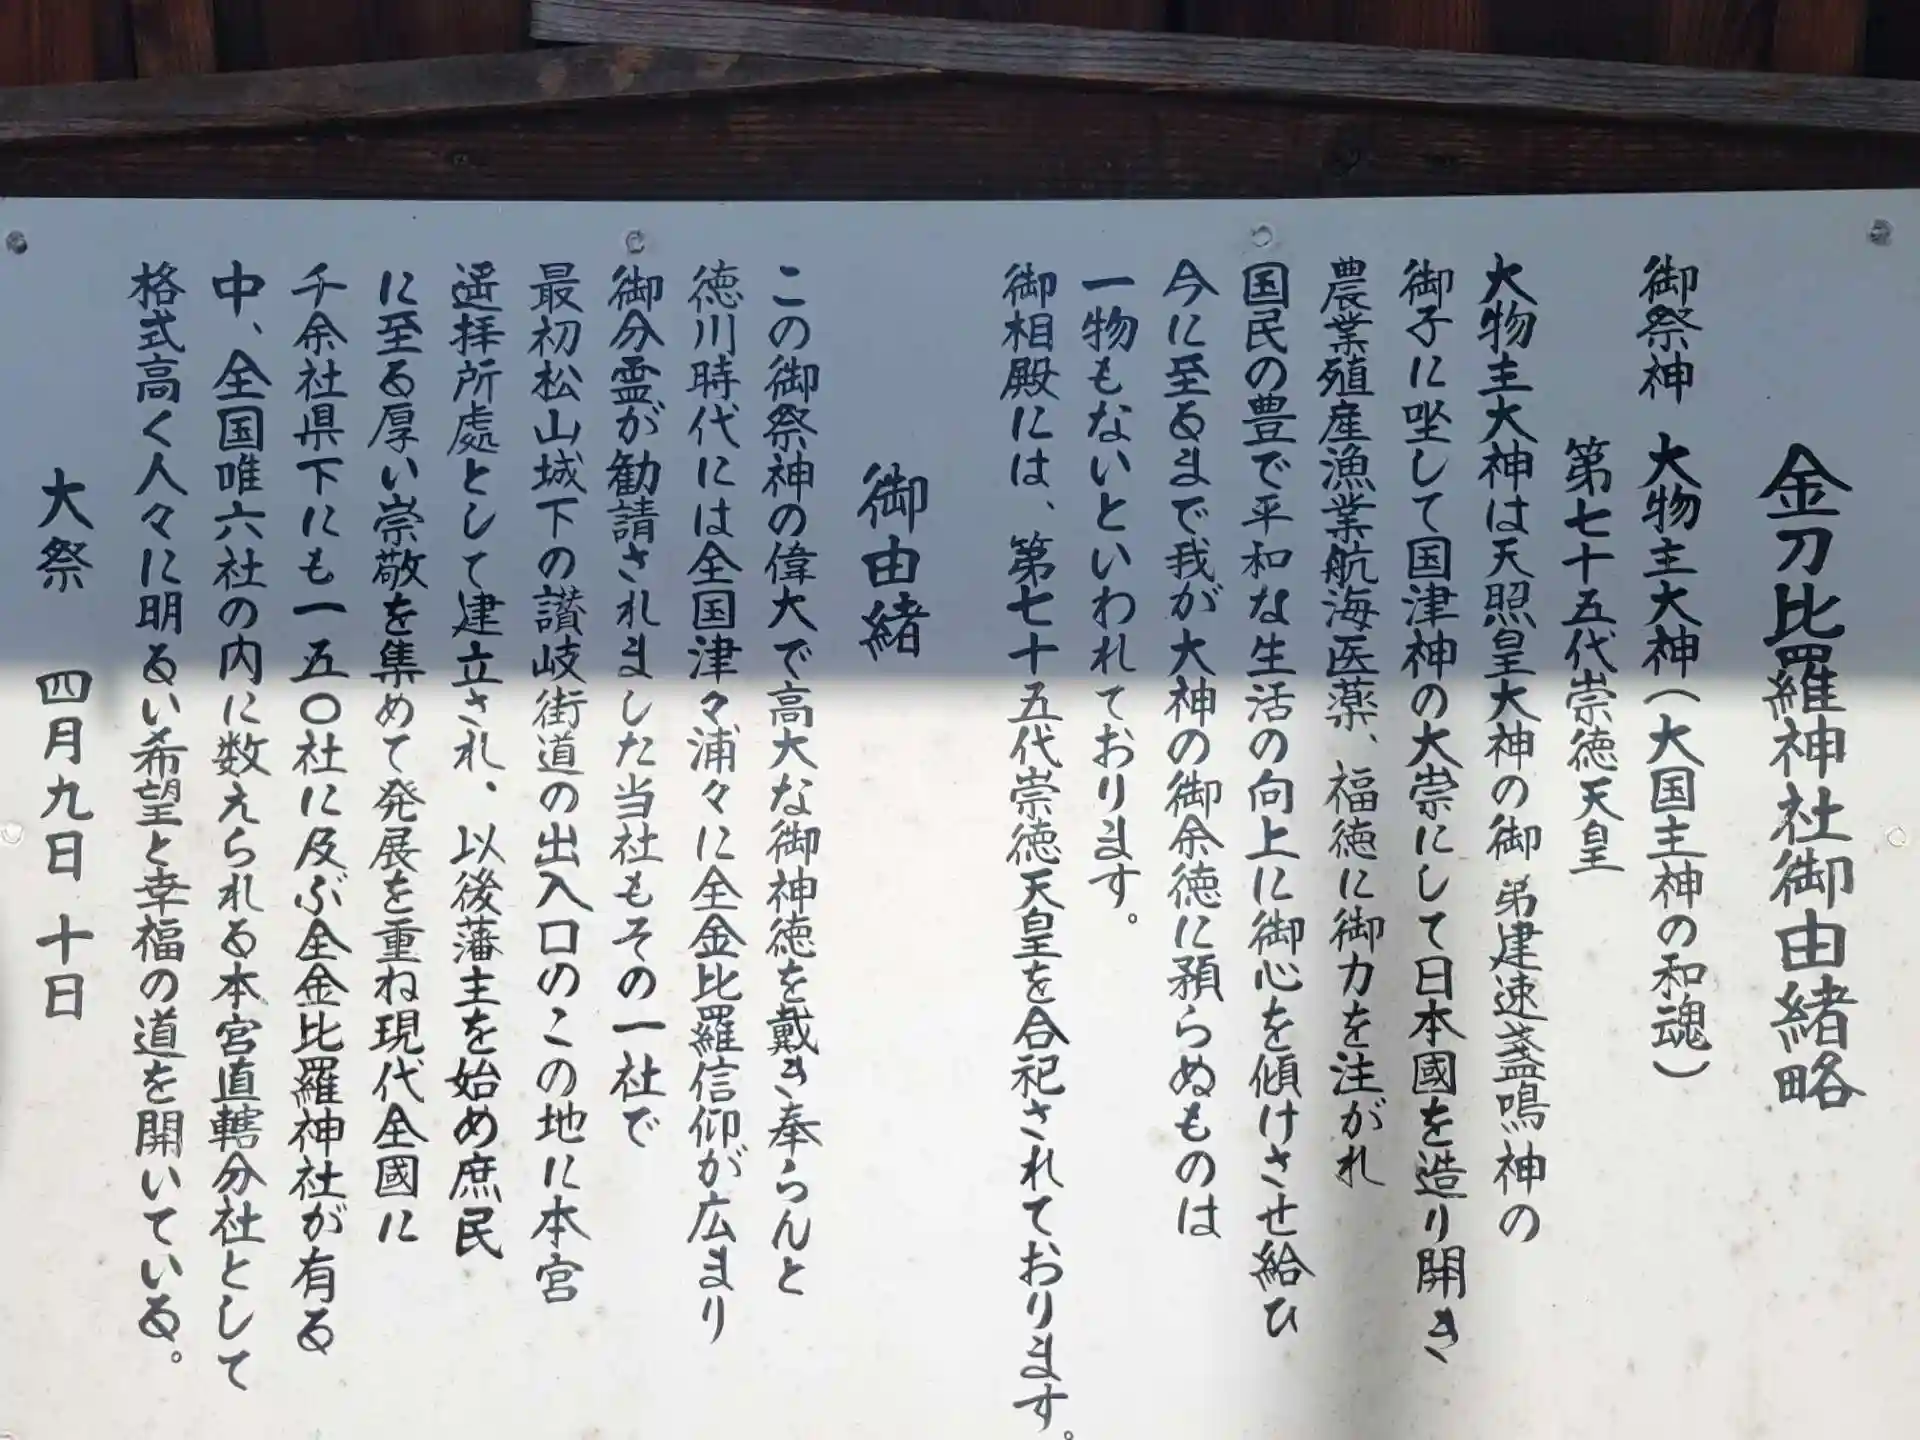 金刀比羅神社御由緒略
御祭神 大物主大神(大国主神の和魂)
第七十五代崇徳天皇
大物主大神は天照皇大神の御弟建速盞鳴神の
御子に坐して国津神の大崇にして日本國を造り開き
農業殖産漁業航海医薬、福徳に御力を注がれ
国民の豊で平和な生活の向上に御心を傾けさせ給ひ
今に至るまで我が大神の御余徳に預らぬものは
一物もないといわれております。
御相殿には、第七十五代崇徳天皇を合祀されております。
御由緒
この御祭神の偉大で高大な御神徳を戴き奉らんと
徳川時代には全国津々浦々に全金比羅信仰が広まり
御分霊が勧請されました当社もその一社で
最初松山城下の讃岐街道の出入口のこの地に本宮
遥拝所處として建立され、以後藩主を始め庶民
に至る厚い崇敬を集めて発展を重ね現代全國に
千余社県下にも一五〇社に及ぶ全金比羅神社が有る
中、全国唯六社の内に数えられる本宮直轄分社として
格式高く人々に明るい希望と幸福の道を開いている。
大祭 四月九日 十日